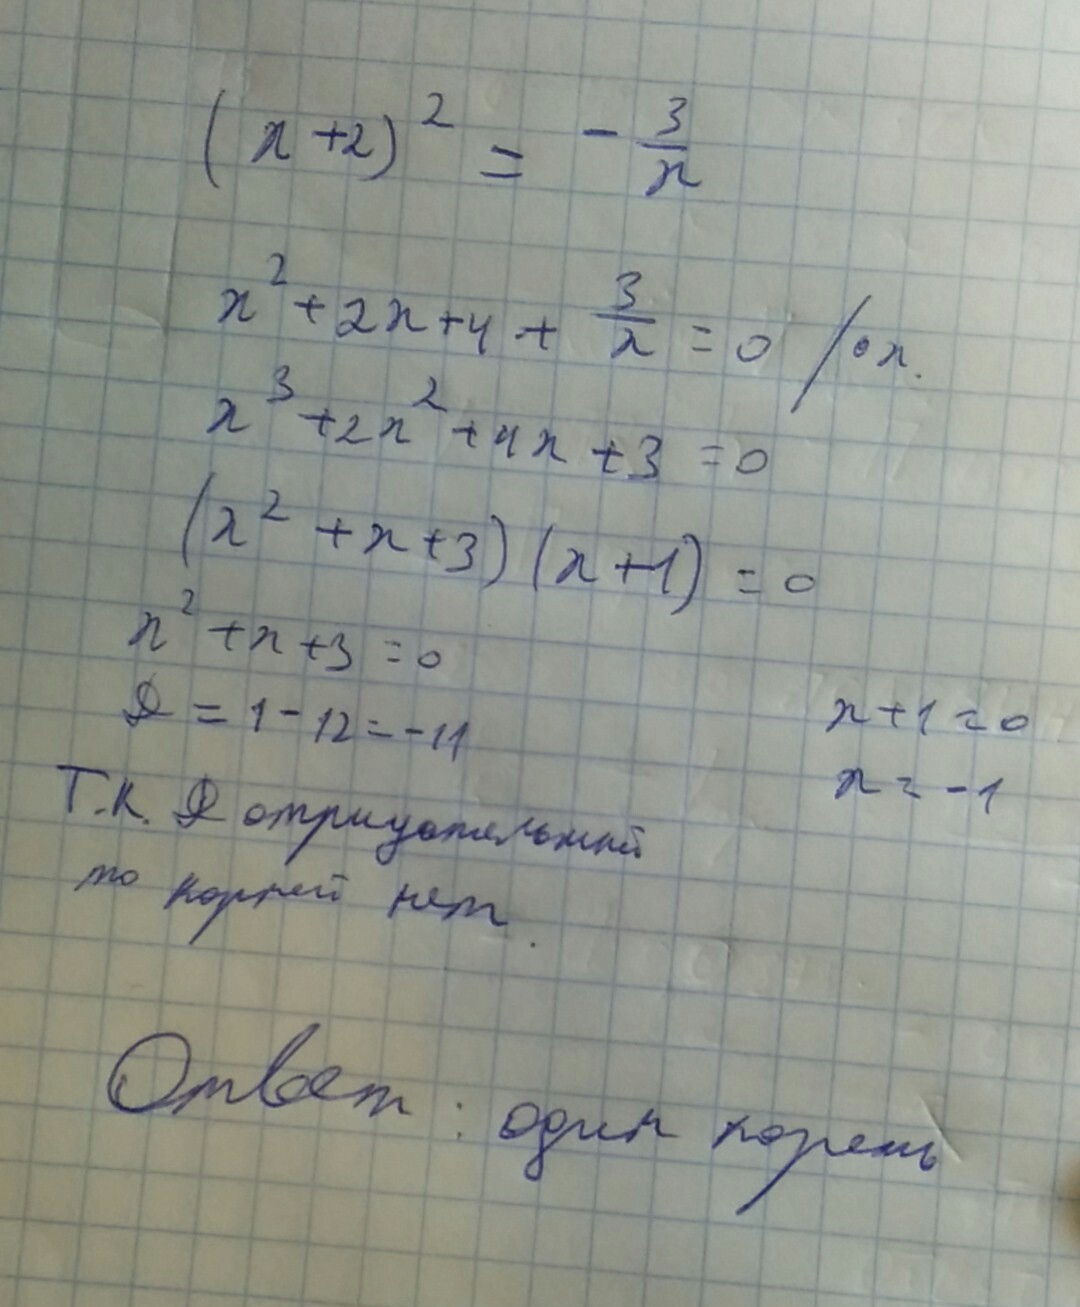 (x+2)² = -3/x
x²+2x+4+3/x=0 /•x.
x³+2x²+4x+3=0
(x²+x+3)(x+1)=0
x²+x+3=0
D=1-12=-11
x+1=0
x=-1
Т.к. D отрицательный
то корней нет.
Ответ: один корень